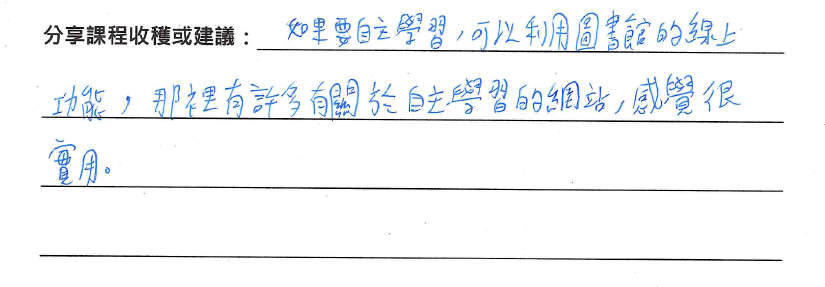 分享課程收穫或建議：如果要自主學習，可以利用圖書館的線上
功能，那裡有許多有關於自主學習的網站，感覺很
實用。